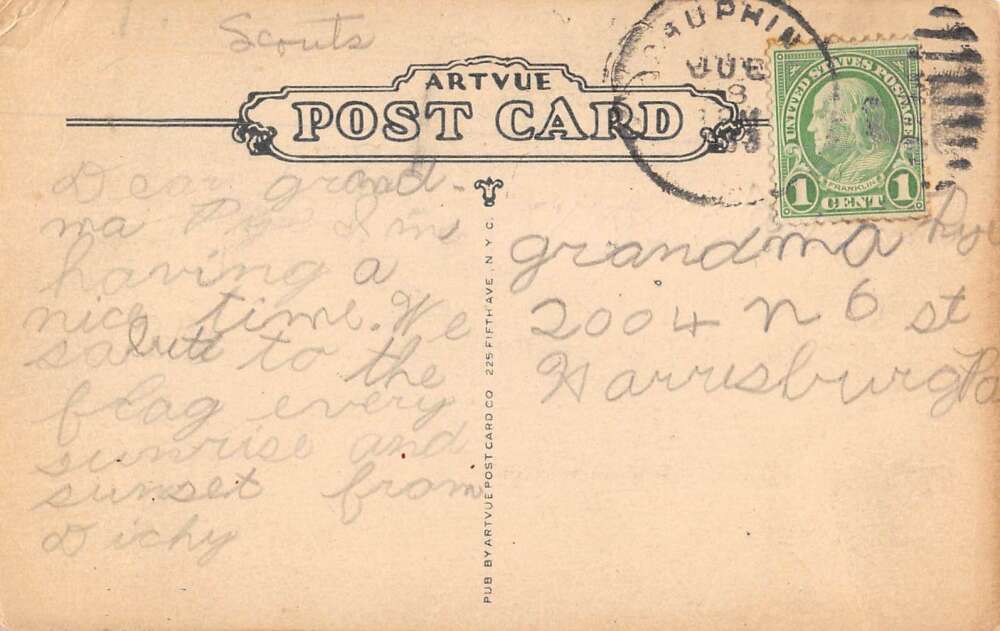 Scouts
ARTVUE
POST CARD
DAUPHIN
8
UNITED STATES POSTAGE
FRANKLIN
1 CENT 1
Dear grand-
ma I'm
having a
nice time. We
salute to the
flag every
sunrise and
sunset from
Dichy
PUB BY ARTVUE POST CARD CO 225 FIFTH AVE. N Y C.
grandma
2004 N 6 st
Harrisburg Pa